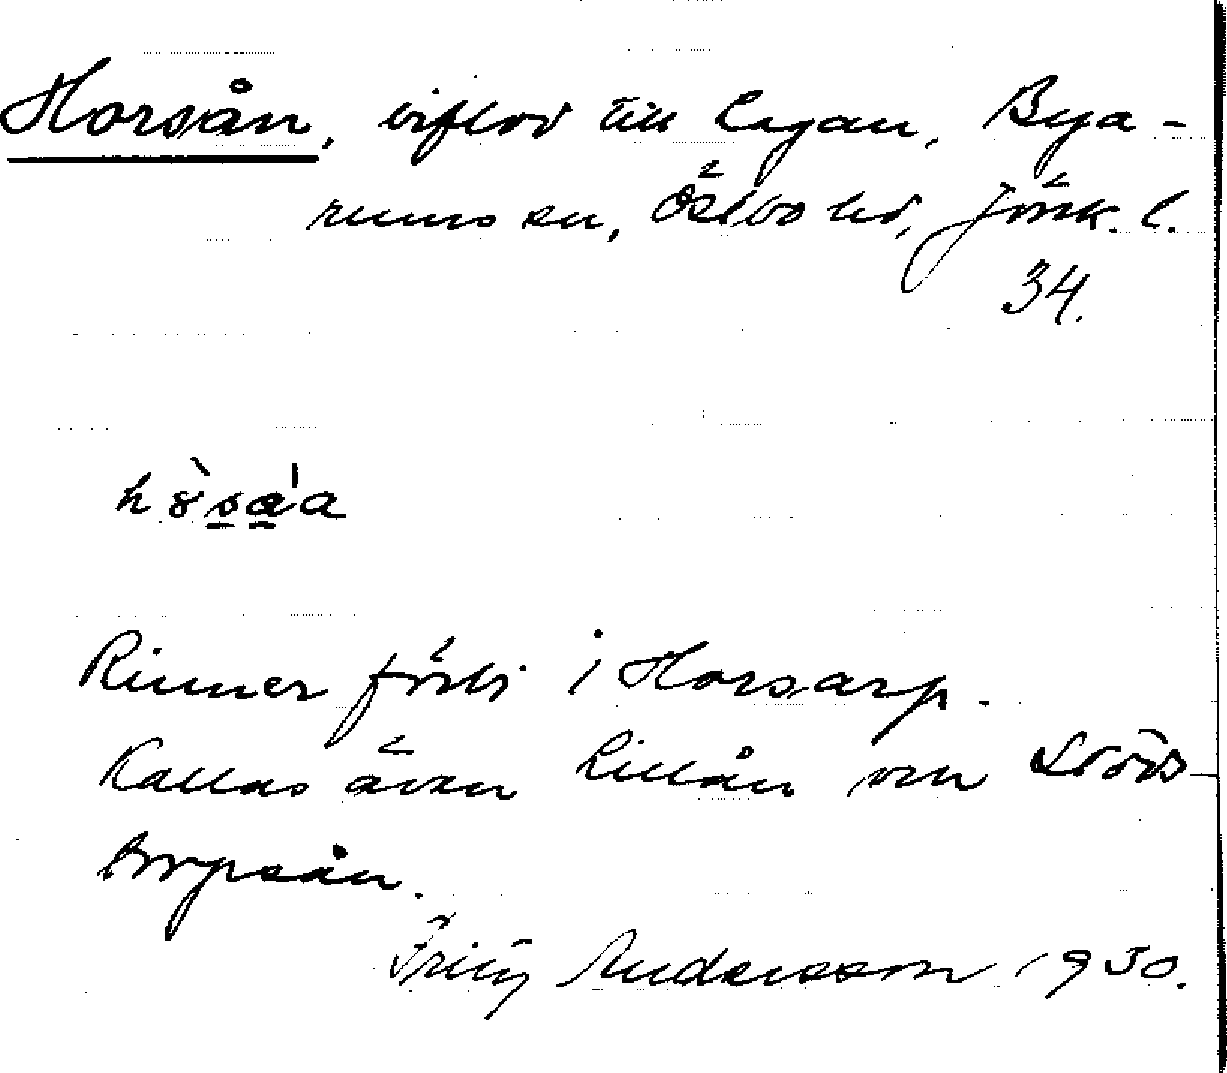 Horsån, biflod till Lagan, Bya-
rums sn, Östbo hd, Jönk. l.
34.
Rinner förbi i Horsarp.
Kallas även Lillån och
Fritz Andersson 1930.